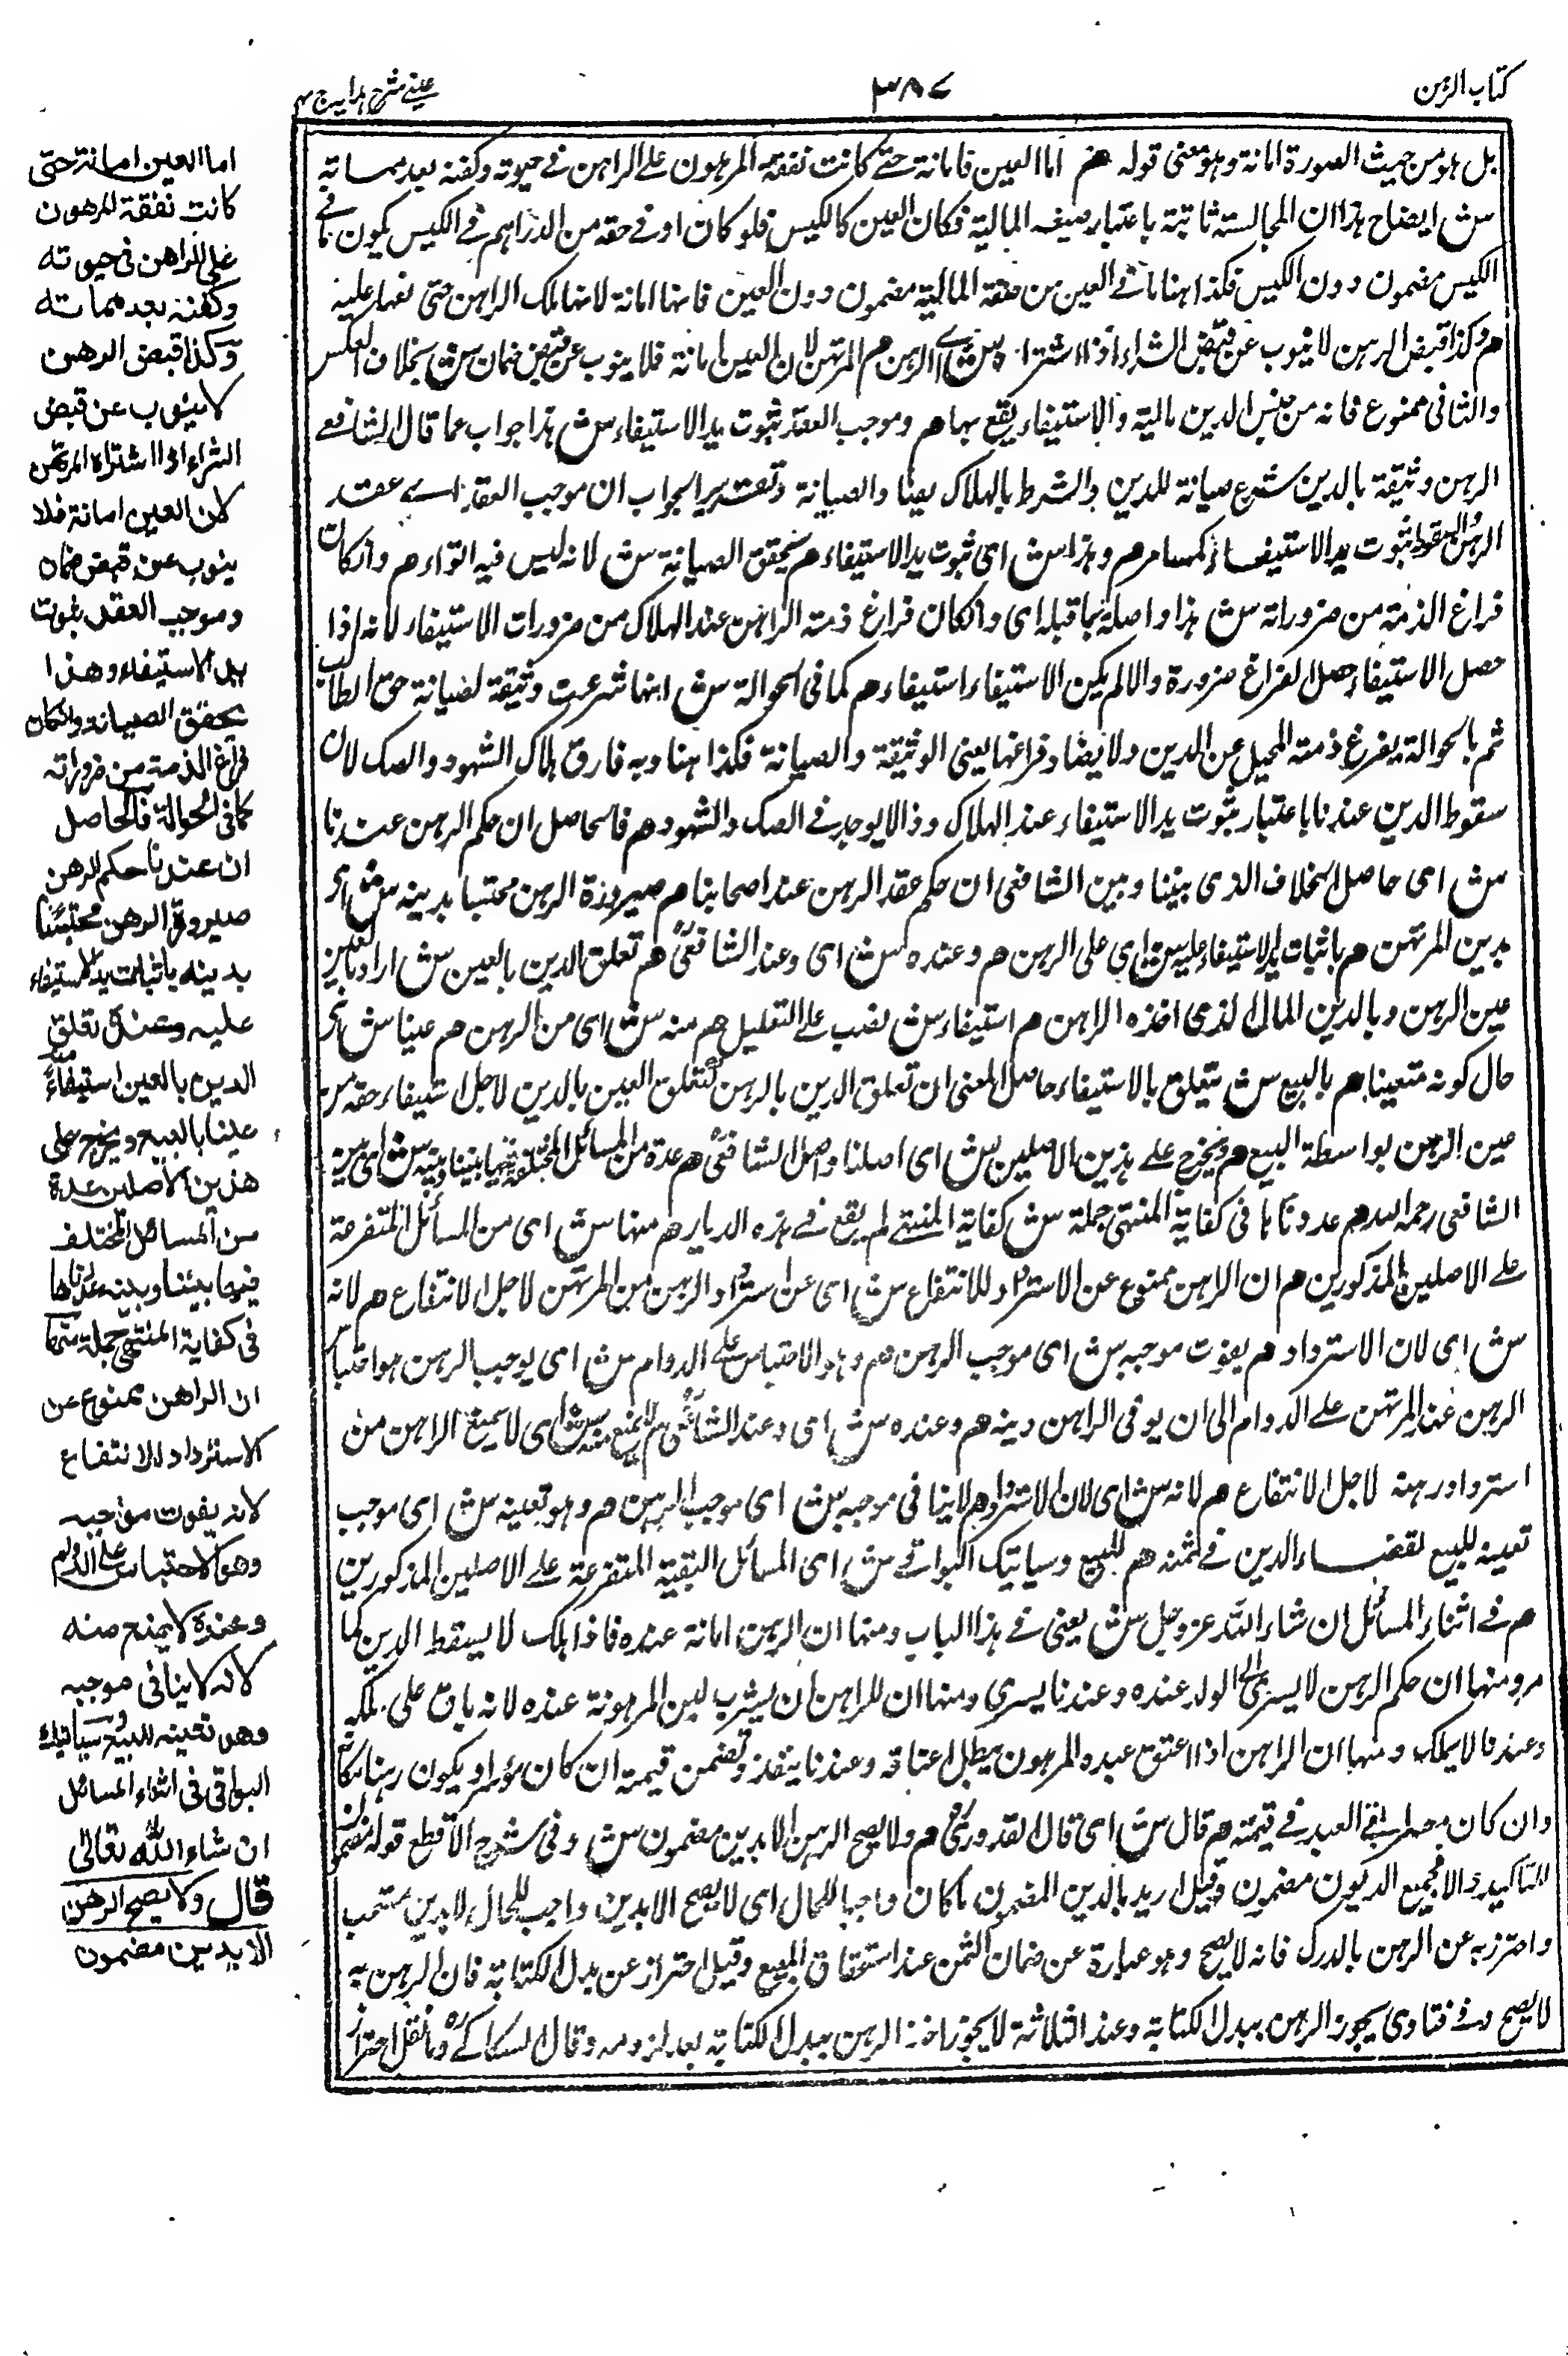 كتاب الرهن
٣٨٧
عيني شرح هدايه ج ٤
بل هو من حيث الصورة امانة وهو معنى قوله هم اما العين فامانة حتى كانت نفقة المرهون على الراهن في حيوته وكفنه بعد مماته
ش ايضاح هذا ان المجالسة ثابتة باعتبار صفة المالية فكان العين كالكيس فلو كان اوفى حقه من الدراهم في الكيس يكون ما في
الكيس مضمون دون الكيس فكذا هنا ما في العين من صفة المالية مضمون دون العين فانها امانة لانها ملك الراهن حتى نفقتها عليه
هم وكذا قبض الرهن لا ينوب عن قبض الشراء اذا اشتراه ش اي الرهن هم المرتهن لان العين امانة فلا ينوب عن قبض ضمان ش بخلاف العكس
والثاني ممنوع فانه من جنس الدين مالية والاستيفاء يقع بها هم وموجب العقد ثبوت يد الاستيفاء ش هذا جواب عما قال الشافعي
الرهن وثيقة بالدين شرع صيانة للدين والشرط بالهلاك يضاد الصيانة وتقدير الجواب ان موجب العقد اي عقد
الرهن ثبوت يد الاستيفاء كما مر هم وهذا ش اي ثبوت يد الاستيفاء هم يحقق الصيانة ش لانه ليس فيه التواء هم وان كان
فراغ الذمة من ضروراته ش هذا واصلة بما قبله اي وان كان فراغ ذمة الراهن عند الهلاك من ضرورات الاستيفاء لانه اذا
حصل الاستيفاء حصل الفراغ ضرورة والا لم يكن الاستيفاء استيفاء هم كما في الحوالة ش انها شرعت وثيقة لصيانة حق الطالب
ثم بالحوالة يفرغ ذمة المحيل عن الدين ولا يضاد فراغها يعني الوثيقة والصيانة فكذا هنا وبه فارق هلاك الشهود والصك لان
سقوط الدين عندنا باعتبار ثبوت يد الاستيفاء عند الهلاك وذا لا يوجد في الصك والشهود هم فالحاصل ان حكم الرهن عندنا
ش اي حاصل الخلاف الذي بيننا وبين الشافعي ان حكم عقد الرهن عند اصحابنا هم صيرورة الرهن محتبسا بدينه ش اي
بدين المرتهن هم باثبات يد الاستيفاء عليه ش اي على الرهن هم وعنده ش اي وعند الشافعي هم تعلق الدين بالعين ش اراد بالعين
عين الرهن وبالدين المال الذي اخذه الراهن هم استيفاء ش نصب على التعليل هم منه ش اي من الرهن هم عينا ش اي
حال كونه متعينا هم بالبيع ش يتعلق بالاستيفاء حاصل المعنى ان تعلق الدين بالرهن كتعلق العين بالدين لاجل استيفاء حقه من
عين الرهن بواسطة البيع هم ويخرج على هذين الاصلين ش اي اصلنا واصل الشافعي هم عدة من المسائل المختلفة فيها بيننا وبينه ش اي بين
الشافعي رحمه الله هم عددناها في كفاية المنتهى جملة ش كفاية المنتهى لم يقع في هذه الديار هم منها ش اي من المسائل المتفرعة
على الاصلين المذكورين هم ان الراهن ممنوع عن الاسترداد للانتفاع ش اي عن استرداد الرهن من المرتهن لاجل الانتفاع هم لانه
ش اي لان الاسترداد هم يفوت موجبه ش اي موجب الرهن هم وهو الاحتباس على الدوام ش اي يوجب الرهن هو احتباس
الرهن عند المرتهن على الدوام الى ان يوفي الراهن دينه هم وعنده ش اي وعند الشافعي هم لا يمنع منه ش اي لا يمنع الراهن من
استرداد رهنه لاجل الانتفاع هم لانه ش اي لان الاسترداد هم لا ينافي موجبه ش اي موجب الرهن هم وهو تعينه ش اي موجب
تعينه للبيع لقضاء الدين في ثمنه هم للبيع وسياتيك البواقي ش اي المسائل البقية المتفرعة على الاصلين المذكورين
هم في اثناء المسائل ان شاء الله عز وجل ش يعني في هذا الباب ومنها ان الرهن امانة عنده فاذا هلك لا يسقط الدين كما
مر ومنها ان حكم الرهن لا يسري الى الولد عنده وعندنا يسري ومنها ان للراهن ان يشرب لبن المرهونة عنده لانه باق على ملكه
وعندنا لا يملك ومنها ان الراهن اذا اعتق عبده المرهون يبطل اعتاقه وعندنا ينفذ وتضمن قيمته ان كان موسرا ويكون رهنا مكانه
وان كان معسرا يسعى العبد في قيمته هم قال ش اي قال القدوري هم ولا يصح الرهن الا بدين مضمون ش وفي شرح الاقطع قوله مضمون
للتاكيد والا فجميع الديون مضمون وقيل اريد بالدين المضمون ما كان واجبا للحال اي لا يصح الا بدين واجب للحال لا بدين مستحب
واحترز به عن الرهن بالدرك فانه لا يصح وهو عبارة عن ضمان الثمن عند استحقاق المبيع وقيل احتراز عن بدل الكتابة فان الرهن به
لا يصح وفي فتاوى يجوز الرهن ببدل الكتابة وعند الثلاثة لا يجوز اخذ الرهن ببدل الكتابة بعد لزومه وقال السكاكي وما نقل احتراز
اما العين امانة حتى
كانت نفقة المرهون
على الراهن في حيوته
وكفنه بعد مماته
وكذا قبض الرهن
لا ينوب عن قبض
الشراء اذا اشتراه المرتهن
لان العين امانة فلا
ينوب عن قبض ضمان
وموجب العقد ثبوت
يد الاستيفاء وهذا
يحقق الصيانة وان كان
فراغ الذمة من ضروراته
كما في الحوالة فالحاصل
ان عندنا حكم الرهن
صيرورة الرهن محتبسا
بدينه باثبات يد الاستيفاء
عليه وعنده تعلق
الدين بالعين استيفاء منه
عينا بالبيع ويخرج على
هذين الاصلين عدة
من المسائل المختلف
فيها بيننا وبينه عددناها
في كفاية المنتهى جملة منها
ان الراهن ممنوع عن
الاسترداد للانتفاع
لانه يفوت موجبه
وهو الاحتباس على الدوام
وعنده لا يمنع منه
لانه لا ينافي موجبه
وهو تعينه للبيع وسياتيك
البواقي في اثناء المسائل
ان شاء الله تعالى
قال ولا يصح الرهن
الا بدين مضمون